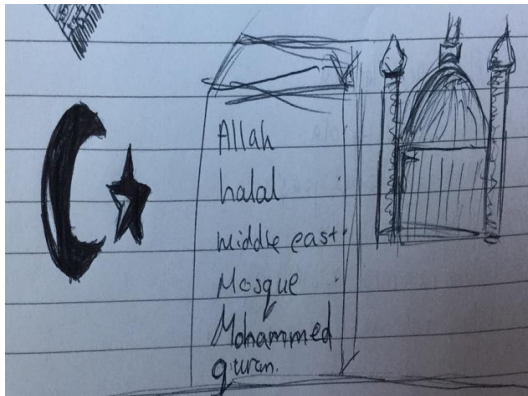 Allah
halal
middle east
Mosque
Mohammed
quran.